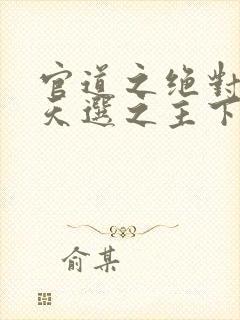 官道之绝對
天選之主下
俞某